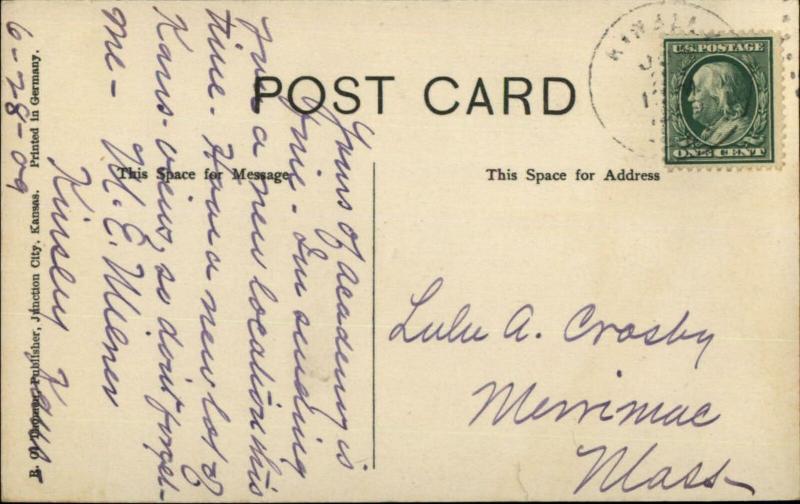 POST CARD
This Space for Message
This Space for Address
U.S. POSTAGE
ONE CENT
Lulu A. Crosby
Merrimac
Mass-
Yours of academy is
fine - I'm sending
you a new location this
time - Have a new lot of
Kans- views, so don't forget-
me - M. E. Milner
Kinsley Kans-
6-28-09
Publisher, Junction City, Kansas. Printed in Germany.